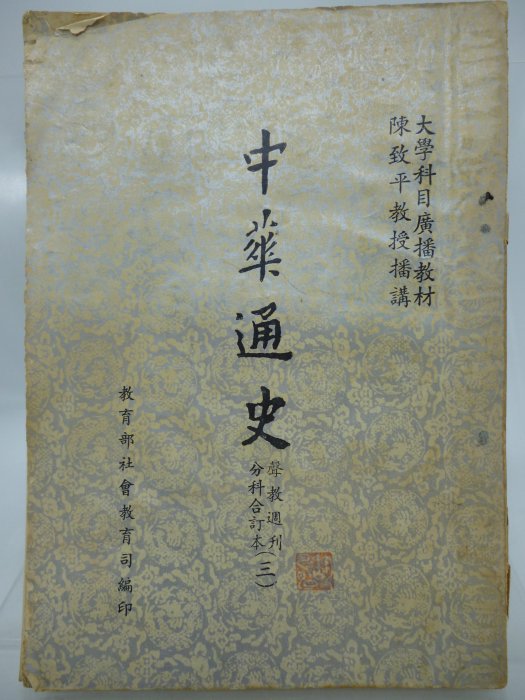 大學科目廣播教材
陳致平教授播講
中華通史
聲教週刊
分科合訂本(三)
教育部社會教育司編印